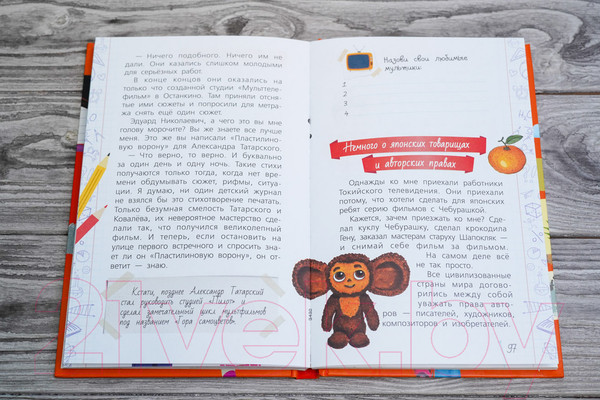 — Ничего подобного. Ничего им не
дали. Они казались слишком молодыми
для серьёзных работ.
В конце концов они оказались на
только что созданной студии «Мультеле-
фильм» в Останкино. Там приняли отсня-
тые ими сюжеты и попросили для метра-
жа снять ещё один сюжет.
Эдуард Николаевич, а чего это вы мне
голову морочите? Вы же знаете всё лучше
меня. Это же вы написали «Пластилино-
вую ворону» для Александра Татарского.
— Что верно, то верно. И буквально
за один день и одну ночь. Такие стихи
получаются только тогда, когда нет вре-
мени обдумывать сюжет, рифмы, ситуа-
ции. Я думаю, ни один детский журнал
не взялся бы это стихотворение печатать.
Только безумная смелость Татарского и
Ковалёва, их невероятное мастерство сде-
лали так, что получился великолепный
фильм. И теперь, если остановить на
улице первого встречного и спросить зна-
ет ли он «Пластилиновую ворону», он от-
ветит — знаю.
Кстати, позднее Александр Татарский
стал руководить студией «Пилот» и
сделал замечательный цикл мультфильмов
под названием «Гора самоцветов».
Назови свои любимые
мультики:
1
2
3
4
Немного о японских товарищах
и авторских правах
Однажды ко мне приехали работники
Токийского телевидения. Они приехали
потому, что хотели сделать для японских
ребят серию фильмов с Чебурашкой.
Кажется, зачем приезжать ко мне? Сде-
лал куклу Чебурашку, сделал крокодила
Гену, заказал мастерам старуху Шапокляк —
и снимай себе фильм за фильмом.
На самом деле всё
не так просто.
Все цивилизованные
страны мира догово-
рились между собой
уважать права авто-
ров — писателей, художников,
композиторов и изобретателей.
97
21vek.by